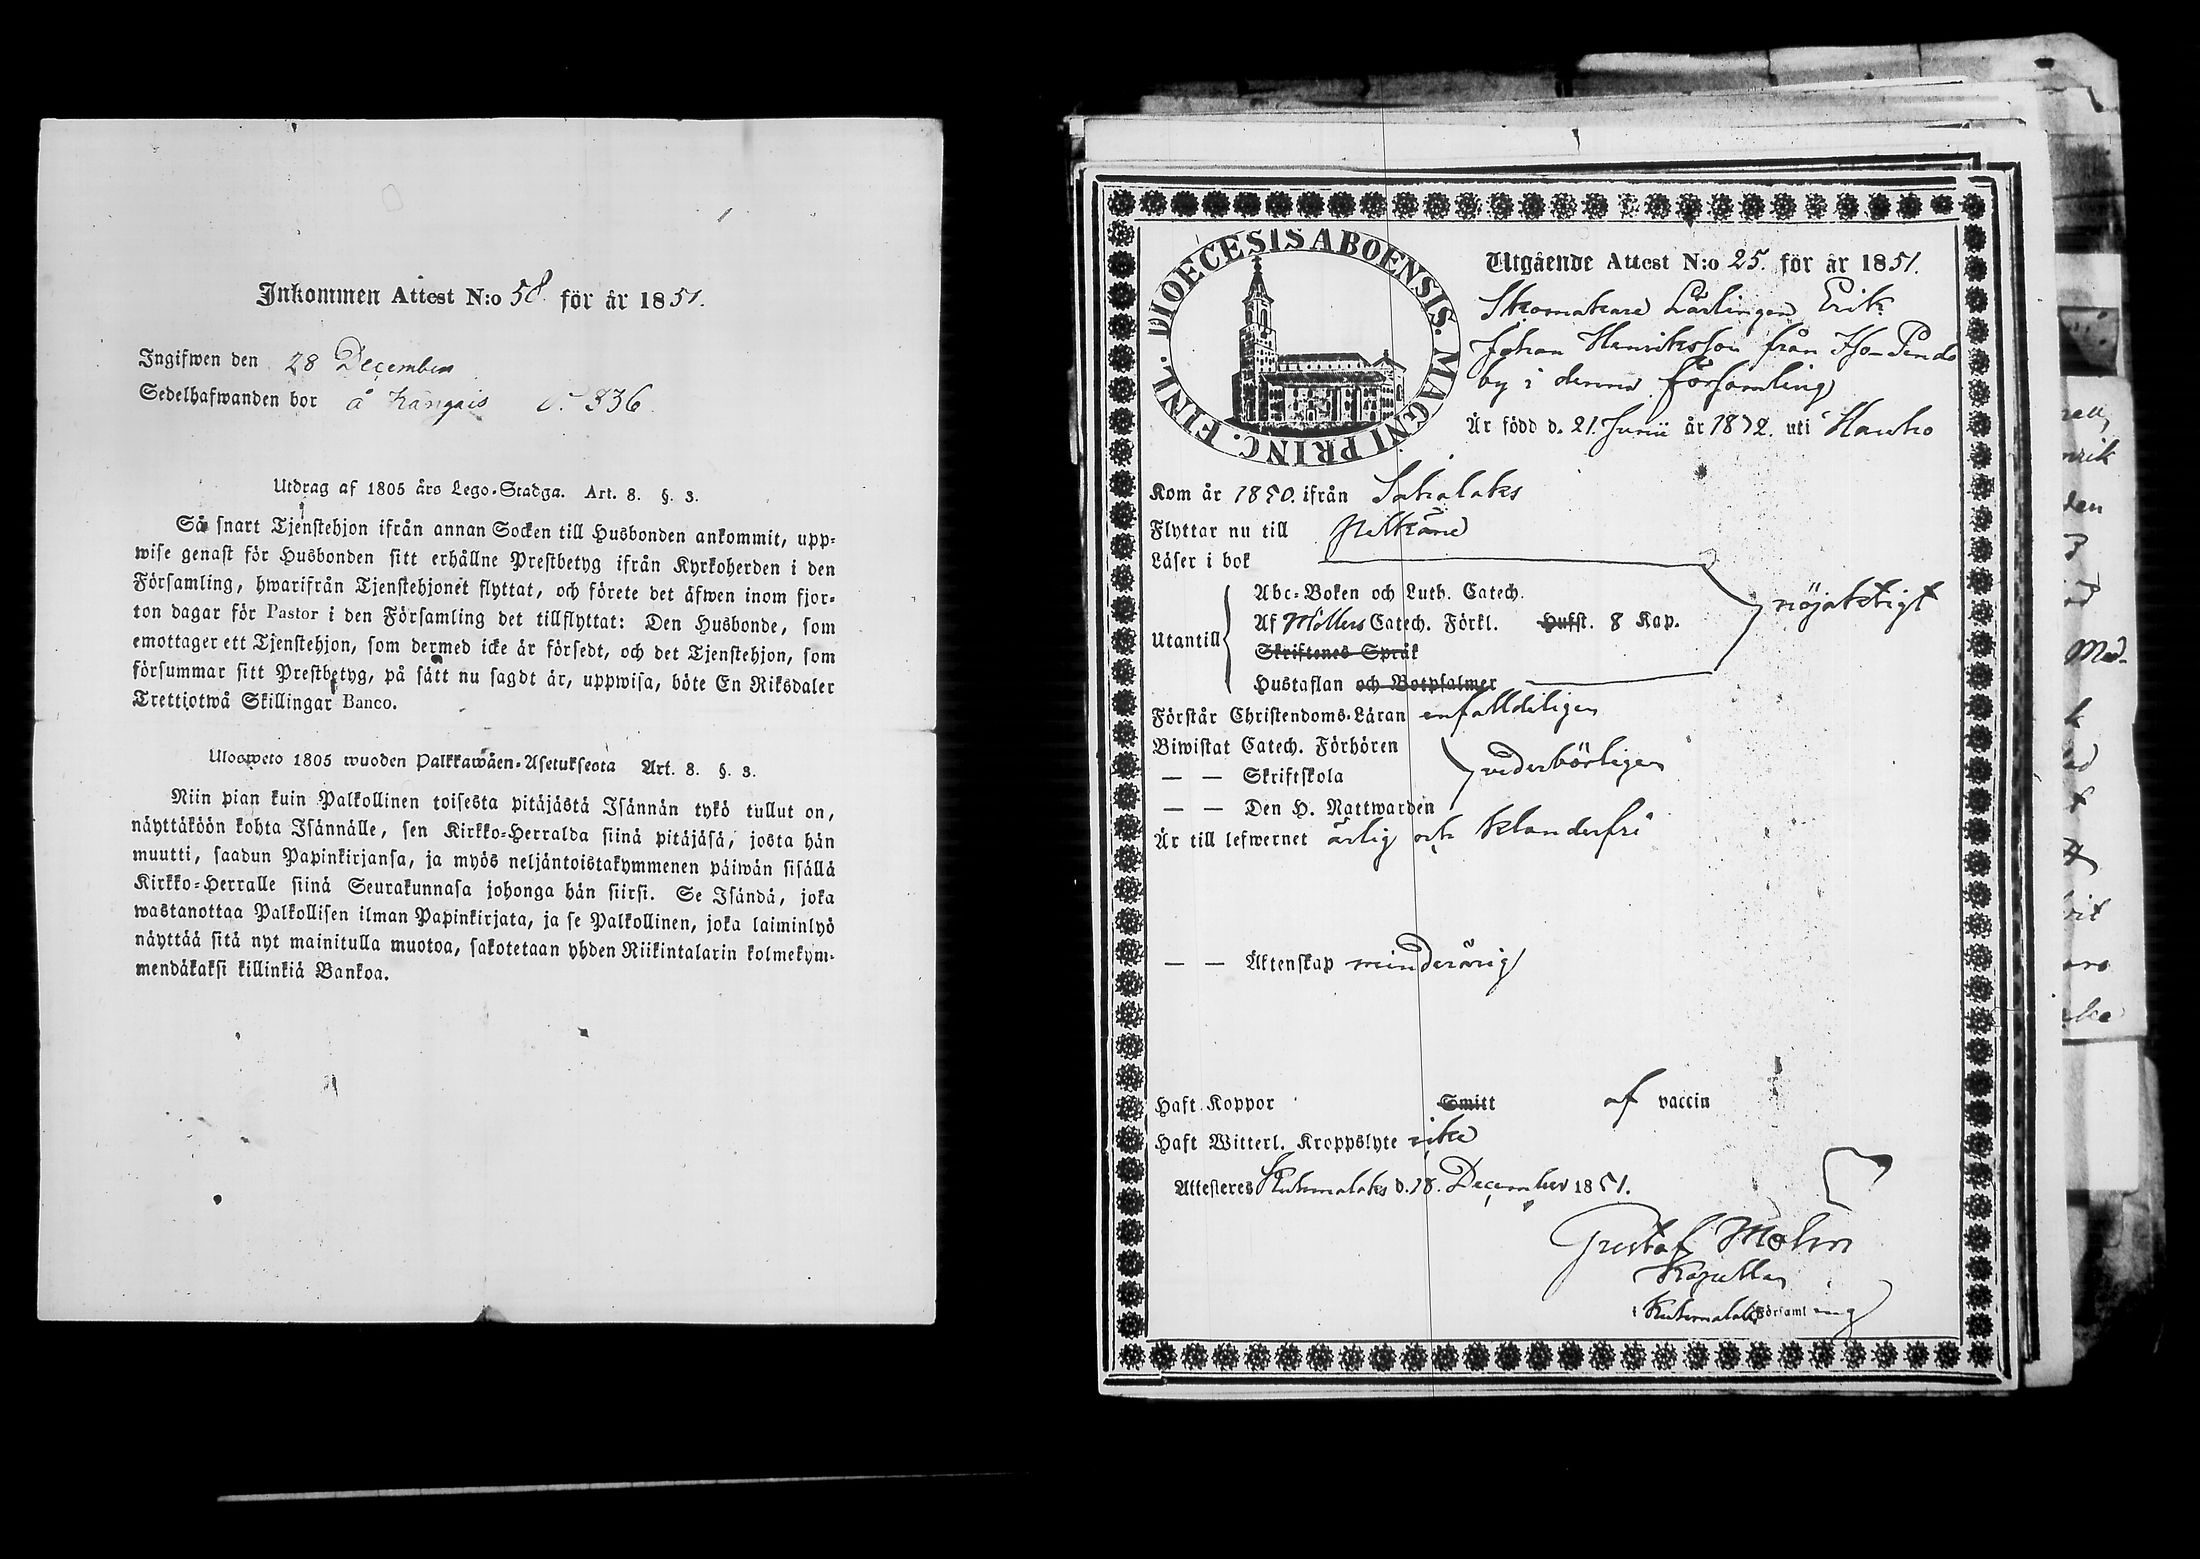 Inkommen Attest N:o 58. för år 1851.
Ingifwen den 28 December
Sedelhafwanden bor å Kangais 336.
Utdrag af 1805 års Lego-Stadga. Art. 8. §. 3.
Så snart Tjenstehjon ifrån annan Socken till Husbonden ankommit, upp-
wise genast för Husbonden sitt erhållne Prestbetyg ifrån Kyrkoherden i den
Församling, hwarifrån Tjenstehjonet flyttat, och förete det äfwen inom fjor-
ton dagar för Pastor i den Församling det tillflyttat: Den Husbonde, som
emottager ett Tjenstehjon, som dermed icke är försedt, och det Tjenstehjon, som
försummar sitt Prestbetyg, på sätt nu sagdt är, uppwisa, böte En Riksdaler
Trettiotwå Skillingar Banco.
Ulosweto 1805 wuoden Palkkawäen-Asetuksesta Art. 8. §. 3.
Niin pian kuin Palkollinen toisesta pitäjästä Isännän tykö tullut on,
näyttäköön kohta Isännälle, sen Kirkko-Herralda siinä pitäjäsä, josta hän
muutti, saadun Papinkirjansa, ja myös neljäntoistakymmenen päiwän sisällä
Kirkko-Herralle siinä Seurakunnasa johonga hän siirsi. Se Isändä, joka
wastanottaa Palkollisen ilman Papinkirjata, ja se Palkollinen, joka laiminlyö
näyttää sitä nyt mainitulla muotoa, sakotetaan yhden Riikintalarin kolmekym-
mendäkaksi killinkiä Bankoa.
DIOECESIS ABOENSIS. MAGNI PRINC. FINL.
Utgående Attest N:o 25. för år 1851.
Skomakare Lärlingen Erik
Johan Henriksson från
by i denna församling
Är född d. 21. Junii år 1832. uti Hauho
Kom år 1850. ifrån Sahalaks
Flyttar nu till Pelkäne
Läser i bok
Abc-Boken och Luth. Catech.
Af Möllers Catech. Förkl. Hufst. 8 Kap.
nöjaktigt
Utantill
Skriftenes Språk
Hustaflan och Botpsalmer
Förstår Christendoms-Läran enfalldeligen
Biwistat Catech. Förhören
— — Skriftskola vederbörligen
— — Den H. Nattwarden
Är till lefwernet ärlig och klanderfri
— — Äktenskap minderårig
Haft Koppor Smitt af vaccin
Haft Witterl. Kroppslyte icke
Attesteres Kuhmalaks d. 18. December 1851.
Gustaf Molin
Kapellan
i Kuhmalaks Församling